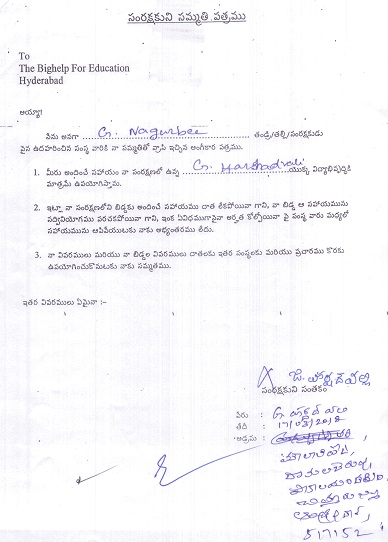 సంరక్షకుని సమ్మతి పత్రము
To
The Bighelp For Education
Hyderabad
అయ్యా!
నేను అనగా G. Nagurbee తండ్రి/తల్లి/సంరక్షకుడు
పైన ఉదహరించిన సంస్థ వారికి నా సమ్మతితో వ్రాసి ఇచ్చిన అంగీకార పత్రము.
1. మీరు అందించే సహాయం నా సంరక్షణలో ఉన్న G. Harshadvali యొక్క విద్యాభివృద్ధికి
మాత్రమే ఉపయోగిస్తాము.
2. ఇట్లా నా సంరక్షణలోని బిడ్డకు అందించే సహాయము దాత లేకపోయినా గాని, నా బిడ్డ ఆ సహాయమును
సద్వినియోగము పరచకపోయినా గాని, ఇంక ఏవిధముగానైనా అర్హత కోల్పోయినా పై సంస్థ వారు మధ్యలో
సహాయమును ఆపివేయుటకు నాకు అభ్యంతరము లేదు.
3. నా వివరములు మరియు నా బిడ్డల వివరములు దాతలకు ఇతర సంస్థలకు మరియు ప్రచారము కొరకు
ఉపయోగించుకొనుటకు నాకు సమ్మతము.
ఇతర వివరములు ఏమైనా :-
సంరక్షకుని సంతకం
పేరు :
తేది : 17/03/2018
అడ్రసు :
517152